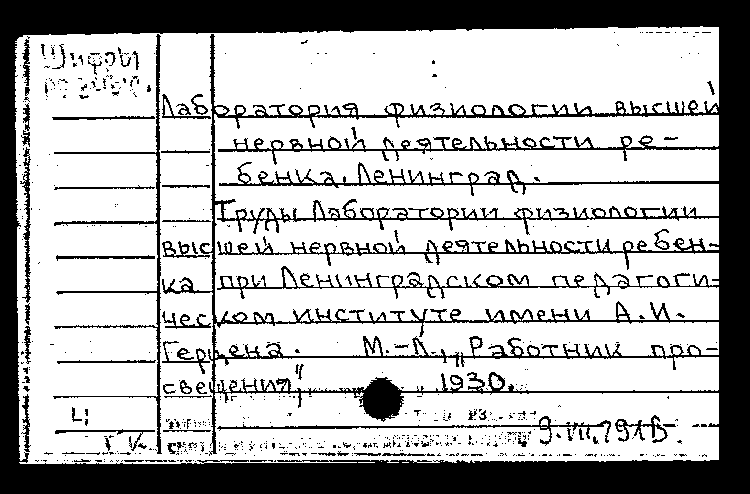 Шифры
по запр.
Лаборатория физиологии высшей
нервной деятельности ре-
бенка. Ленинград.
Труды Лаборатории физиологии
высшей нервной деятельности ребен-
ка при Ленинградском педагоги-
ческом институте имени А.И.
Герцена. М.-Л., „Работник про-
свещения", 1930.
Ц
ГК
9.VII.791В.